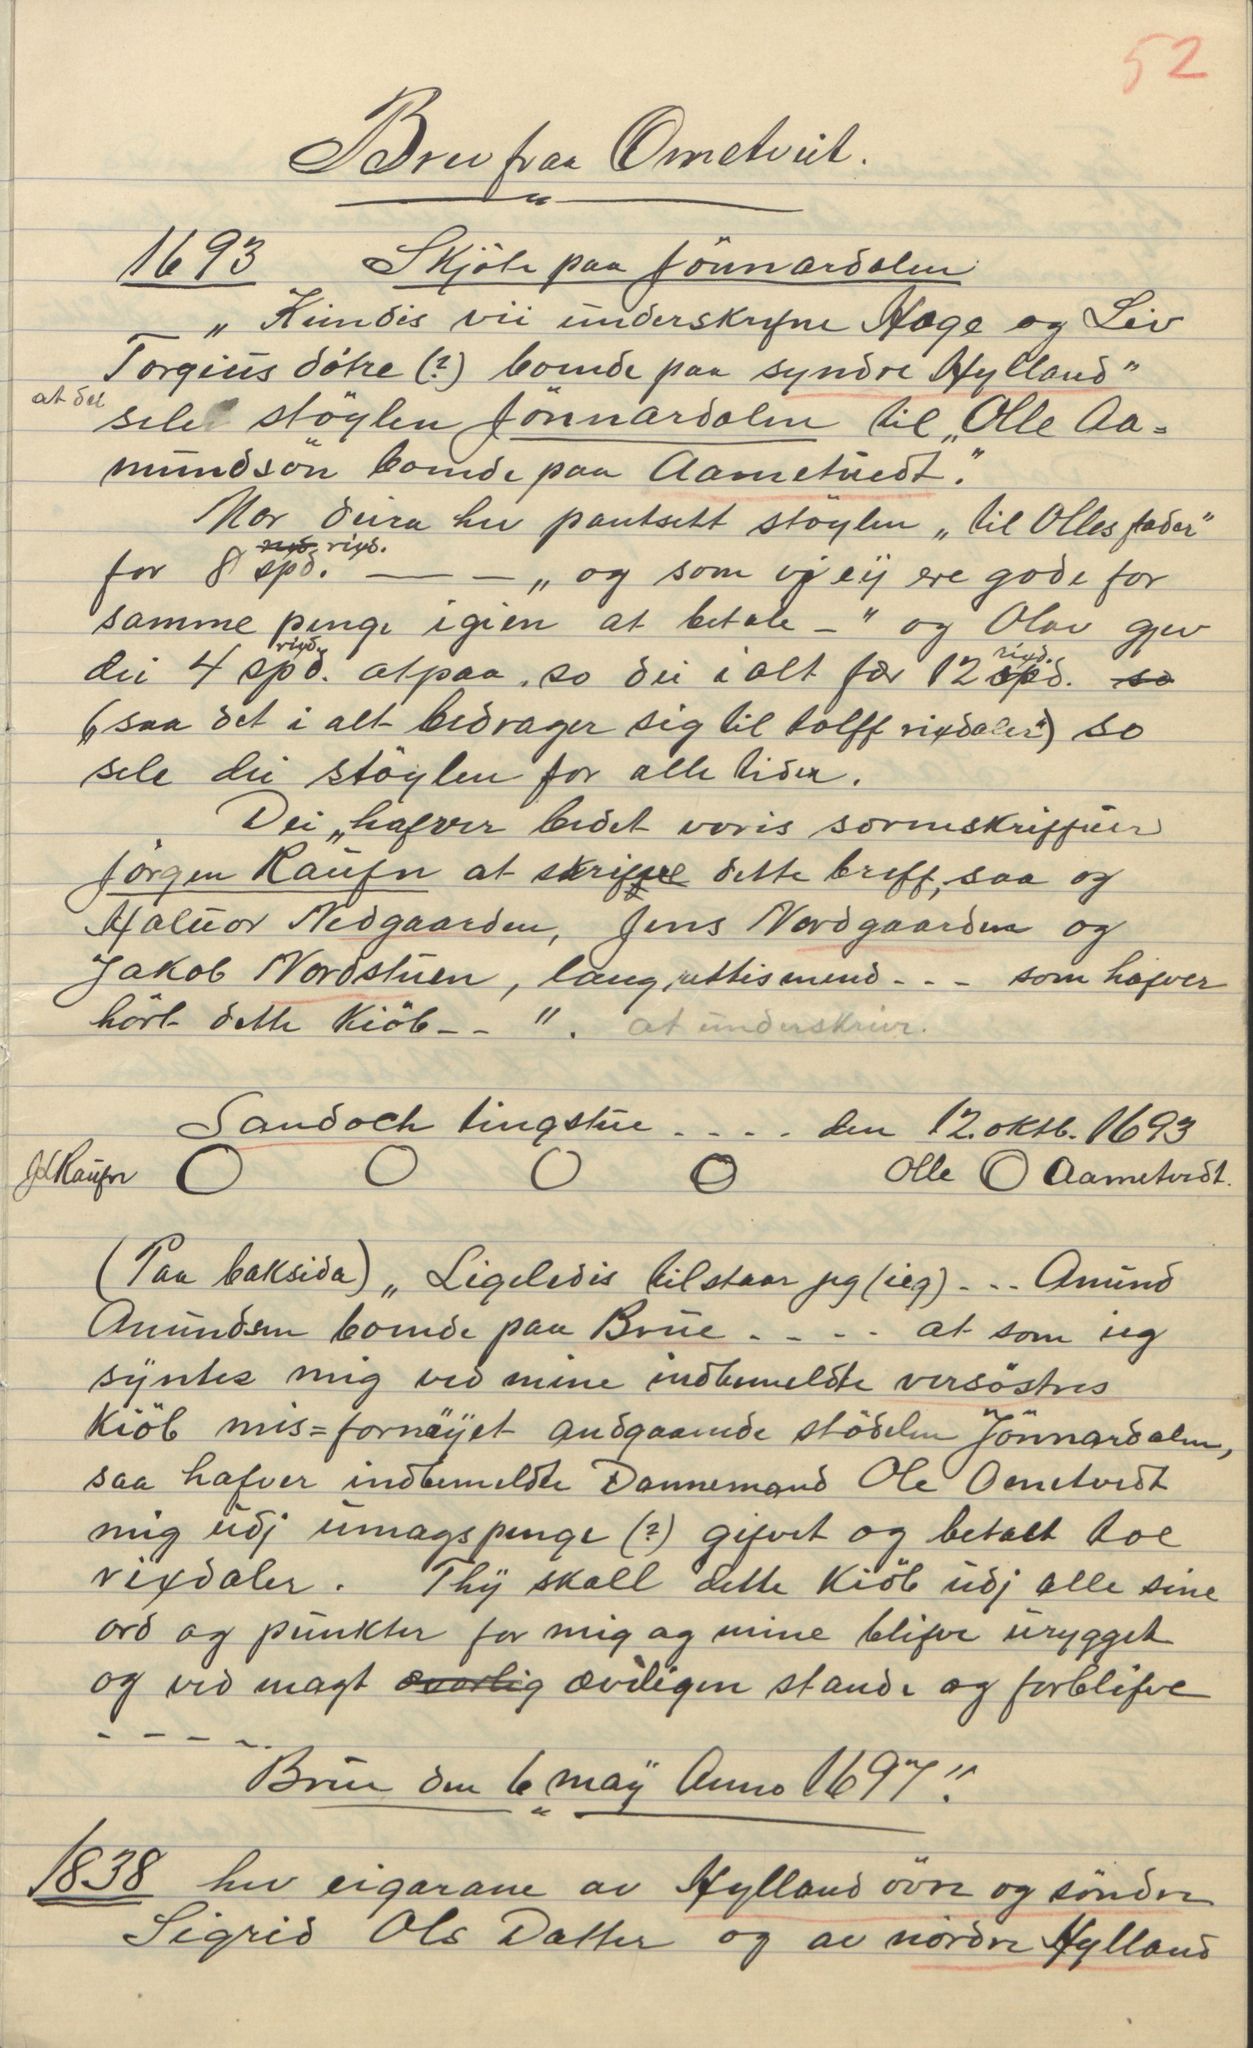 52
Brev fraa Ometveit.
1693 Skjöte paa Jönnardalen
— „ Kiendis vii underskrefne Aage og Liv
Torgius dötre (?) boende paa syndre Hylland"
at dei
sele stöylen Jönnardalen til „Olle Aa=
mundsön boende paa Aametuedt."
Mor deira hev pantsett stöylen „til Olles fader"
rixd.
for 8 spd. — — - „ og som vj eÿ ere gode for
samme penge igien at betale -" og Olav gjev
rixd. rixd.
dei 4 spd. atpaa, so dei i alt fær 12 spd. so
(„saa det i alt bedrager sig til tolff rixdaler") so
sele dei stöylen for alle tider.
Dei „hafver bedet voris sorenskriffuer
Jörgen Raufn at skriffve dette breff, saa og
Haluor Nedgaarden, Jens Nordgaarden og
Jakob Nordstuen, laugrettismend - - - som hafver
hört dette Kiöb - - ". at underskriv.
Sandoch tingstue - - - - den 12. oktb. 1693
JLRaufn O O O O Olle O Aametvedt.
(Paa baksida) „Ligeledis tilstaar jeg (ieg) - - - Amund
Amundsen boende paa Brue - - - - at som ieg
sÿntes mig ved mine indbemeldte versöstres
Kiöb mis=fornöÿet andgaaende stödelen Jönnardalen,
saa hafver indbemeldte Dannemand Ole Ometvedt
mig udj umagspenge (?) gifvet og betalt toe
rixdaler. Thÿ skall dette Kiöb udj alle sine
ord og punkter for mig og mine blifve urygget
og ved magt ævarlig æviligen stande og forblifve
- - - - -
Brue den 6 maÿ Anno 1697".
1838 hev eigarane av Hylland övre og söndre
Sigrid Ols Datter og av nordre Hylland